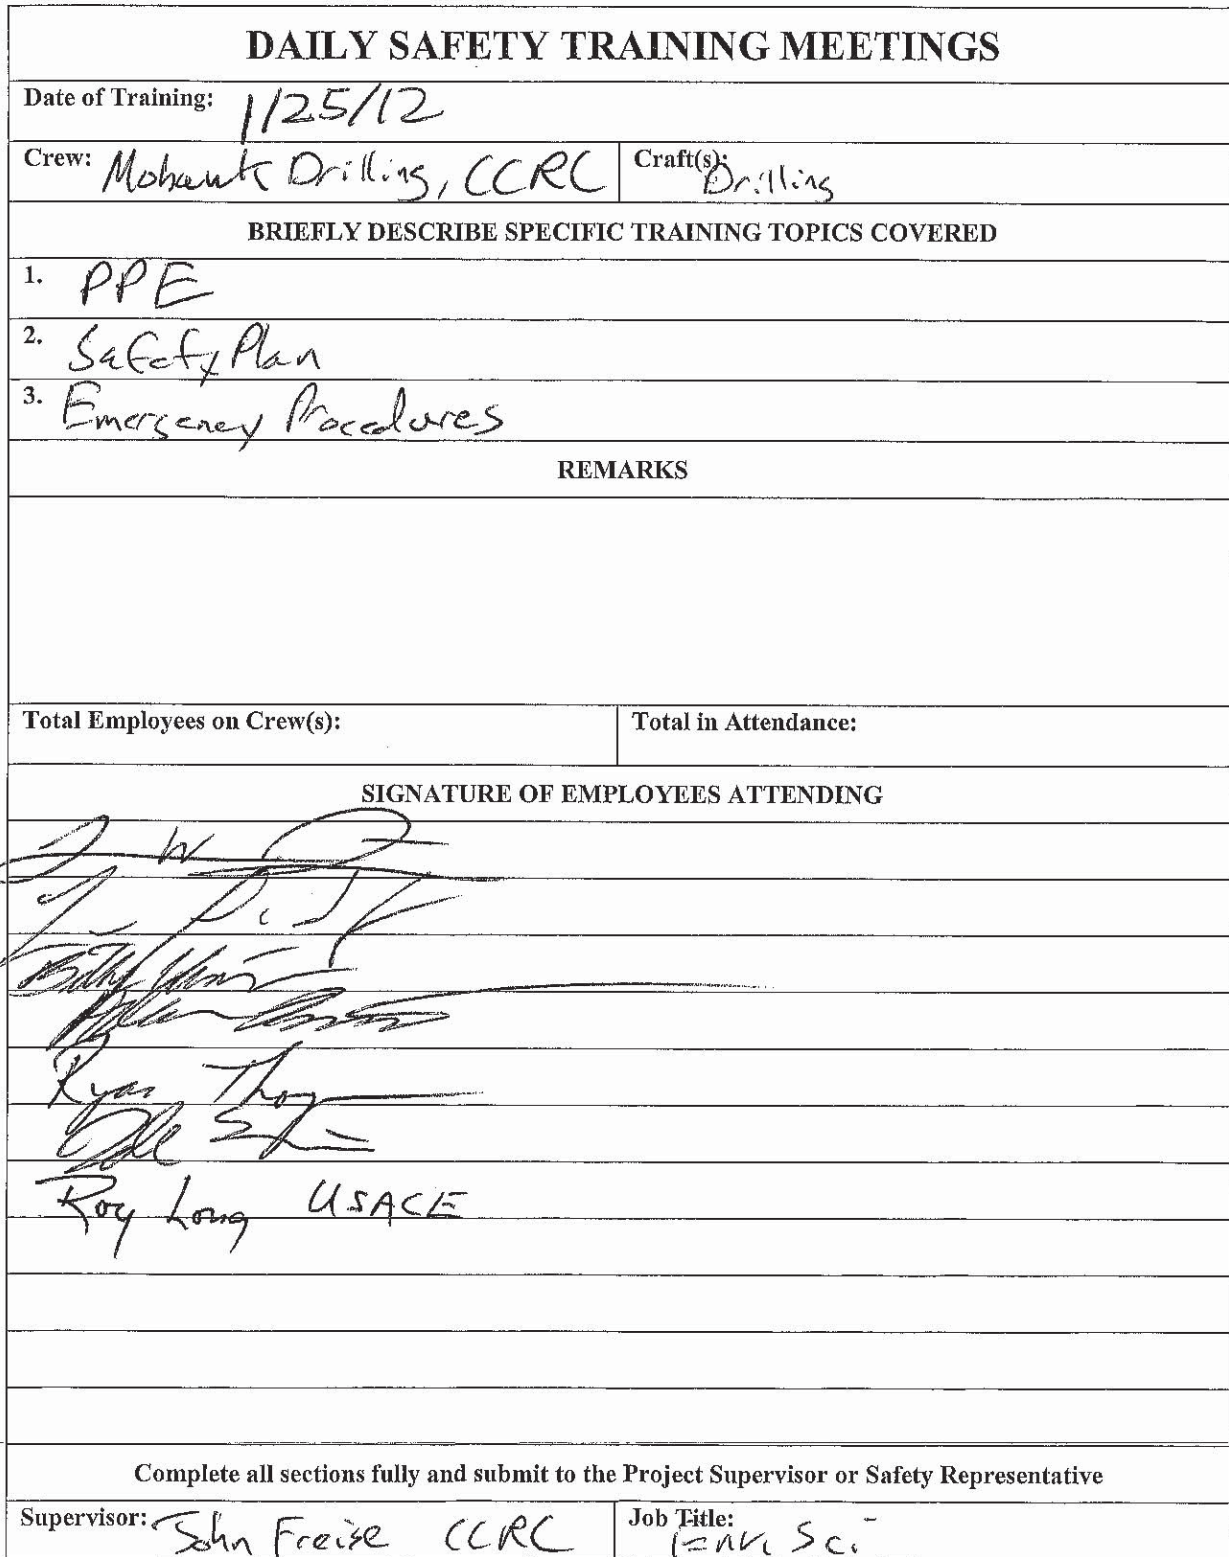 DAILY SAFETY TRAINING MEETINGS
Date of Training: 1/25/12
Crew: Mohawk Drilling, CCRC Craft(s): Drilling
BRIEFLY DESCRIBE SPECIFIC TRAINING TOPICS COVERED
1. PPE
2. Safety Plan
3. Emergency Procedures
REMARKS
Total Employees on Crew(s): Total in Attendance:
SIGNATURE OF EMPLOYEES ATTENDING
W
Billy
Ryan
Roy Long USACE
Complete all sections fully and submit to the Project Supervisor or Safety Representative
Supervisor: John Freise CCRC Job Title: Envi Sci